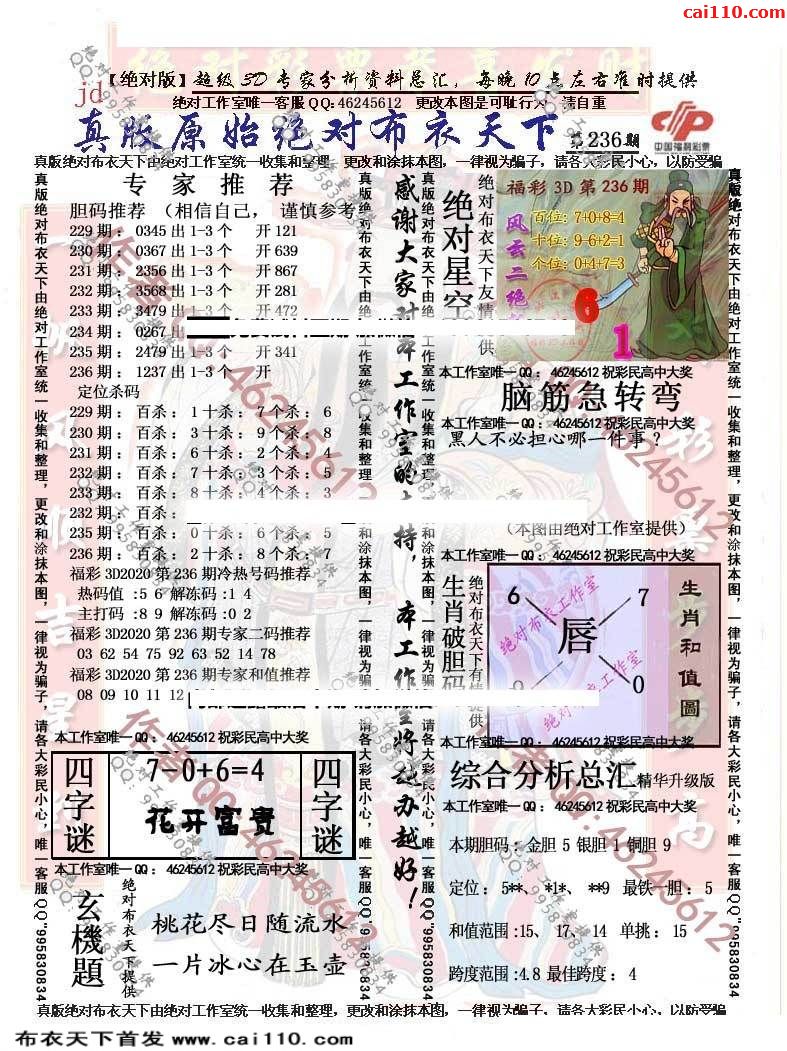 cai110.com
【绝对版】超级3D专家分析资料总汇，每晚10点左右准时提供
jd
绝对工作室唯一客服QQ:46245612 更改本图是可耻行为 请自重
真版原始绝对布衣天下 第236期
中国福利彩票
真版绝对布衣天下由绝对工作室统一收集和整理，更改和涂抹本图，一律视为骗子，请各大彩民小心，以防受骗
真版绝对布衣天下由绝对工作室统一收集和整理，更改和涂抹本图，一律视为骗子，请各大彩民小心，唯一客服QQ"995830834
专家推荐
胆码推荐 （相信自己， 谨慎参考
229期：0345出1-3个 开121
230期：0367出1-3个 开639
231期：2356出1-3个 开867
232期：3568出1-3个 开281
233期：3479出1-3个 开472
234期：0267出
235期：2479出1-3个 开341
236期：1237出1-3个 开
定位杀码
229期：百杀：1十杀：7个杀：6
230期：百杀：3十杀：9个杀：8
231期：百杀：6十杀：2个杀：4
232期：百杀：7十杀：3个杀：5
233期：百杀：8十杀：4个杀：3
232期：百杀：
235期：百杀：0十杀：6个杀：5
236期：百杀：2十杀：8个杀：7
福彩3D2020第236期冷热号码推荐
热码值：5 6 解冻码：1 4
主打码：8 9 解冻码：0 2
福彩3D2020第236期专家二码推荐
03 62 54 75 92 63 52 14 78
福彩3D2020第236期专家和值推荐
08 09 10 11 12
本工作室唯一QQ：46245612祝彩民高中大奖
四字谜
7-0+6=4
花开富贵
四字谜
本工作室唯一QQ：46245612祝彩民高中大奖
玄機題
绝对布衣天下提供
桃花尽日随流水
一片冰心在玉壶
感谢大家对本工作室的支持，本工作室将越办越好！
绝对星空
绝对布衣天下友情提供
福彩3D第236期
风云二绝
百位:7+0+8=4
十位:9-6+2=1
个位:0+4+7=3
6
1
本工作室唯一QQ：46245612祝彩民高中大奖
脑筋急转弯
本工作室唯一QQ：46245612祝彩民高中大奖
黑人不必担心哪一件事？
（本图由绝对工作室提供）
本工作室唯一QQ：46245612祝彩民高中大奖
生肖破胆码
绝对布衣天下有情提供
6
7
唇
0
绝对布衣工作室
生肖和值圖
本工作室唯一QQ：46245612祝彩民高中大奖
综合分析总汇 精华升级版
本工作室唯一QQ：46245612祝彩民高中大奖
本期胆码：金胆5银胆1铜胆9
定位：5**、*1*、**9 最铁一胆：5
和值范围:15、17、14 单挑：15
跨度范围:4.8最佳跨度：4
真版绝对布衣天下由绝对工作室统一收集和整理，更改和涂抹本图，一律视为骗子，请各大彩民小心，以防受骗
布衣天下首发 www.cai110.com